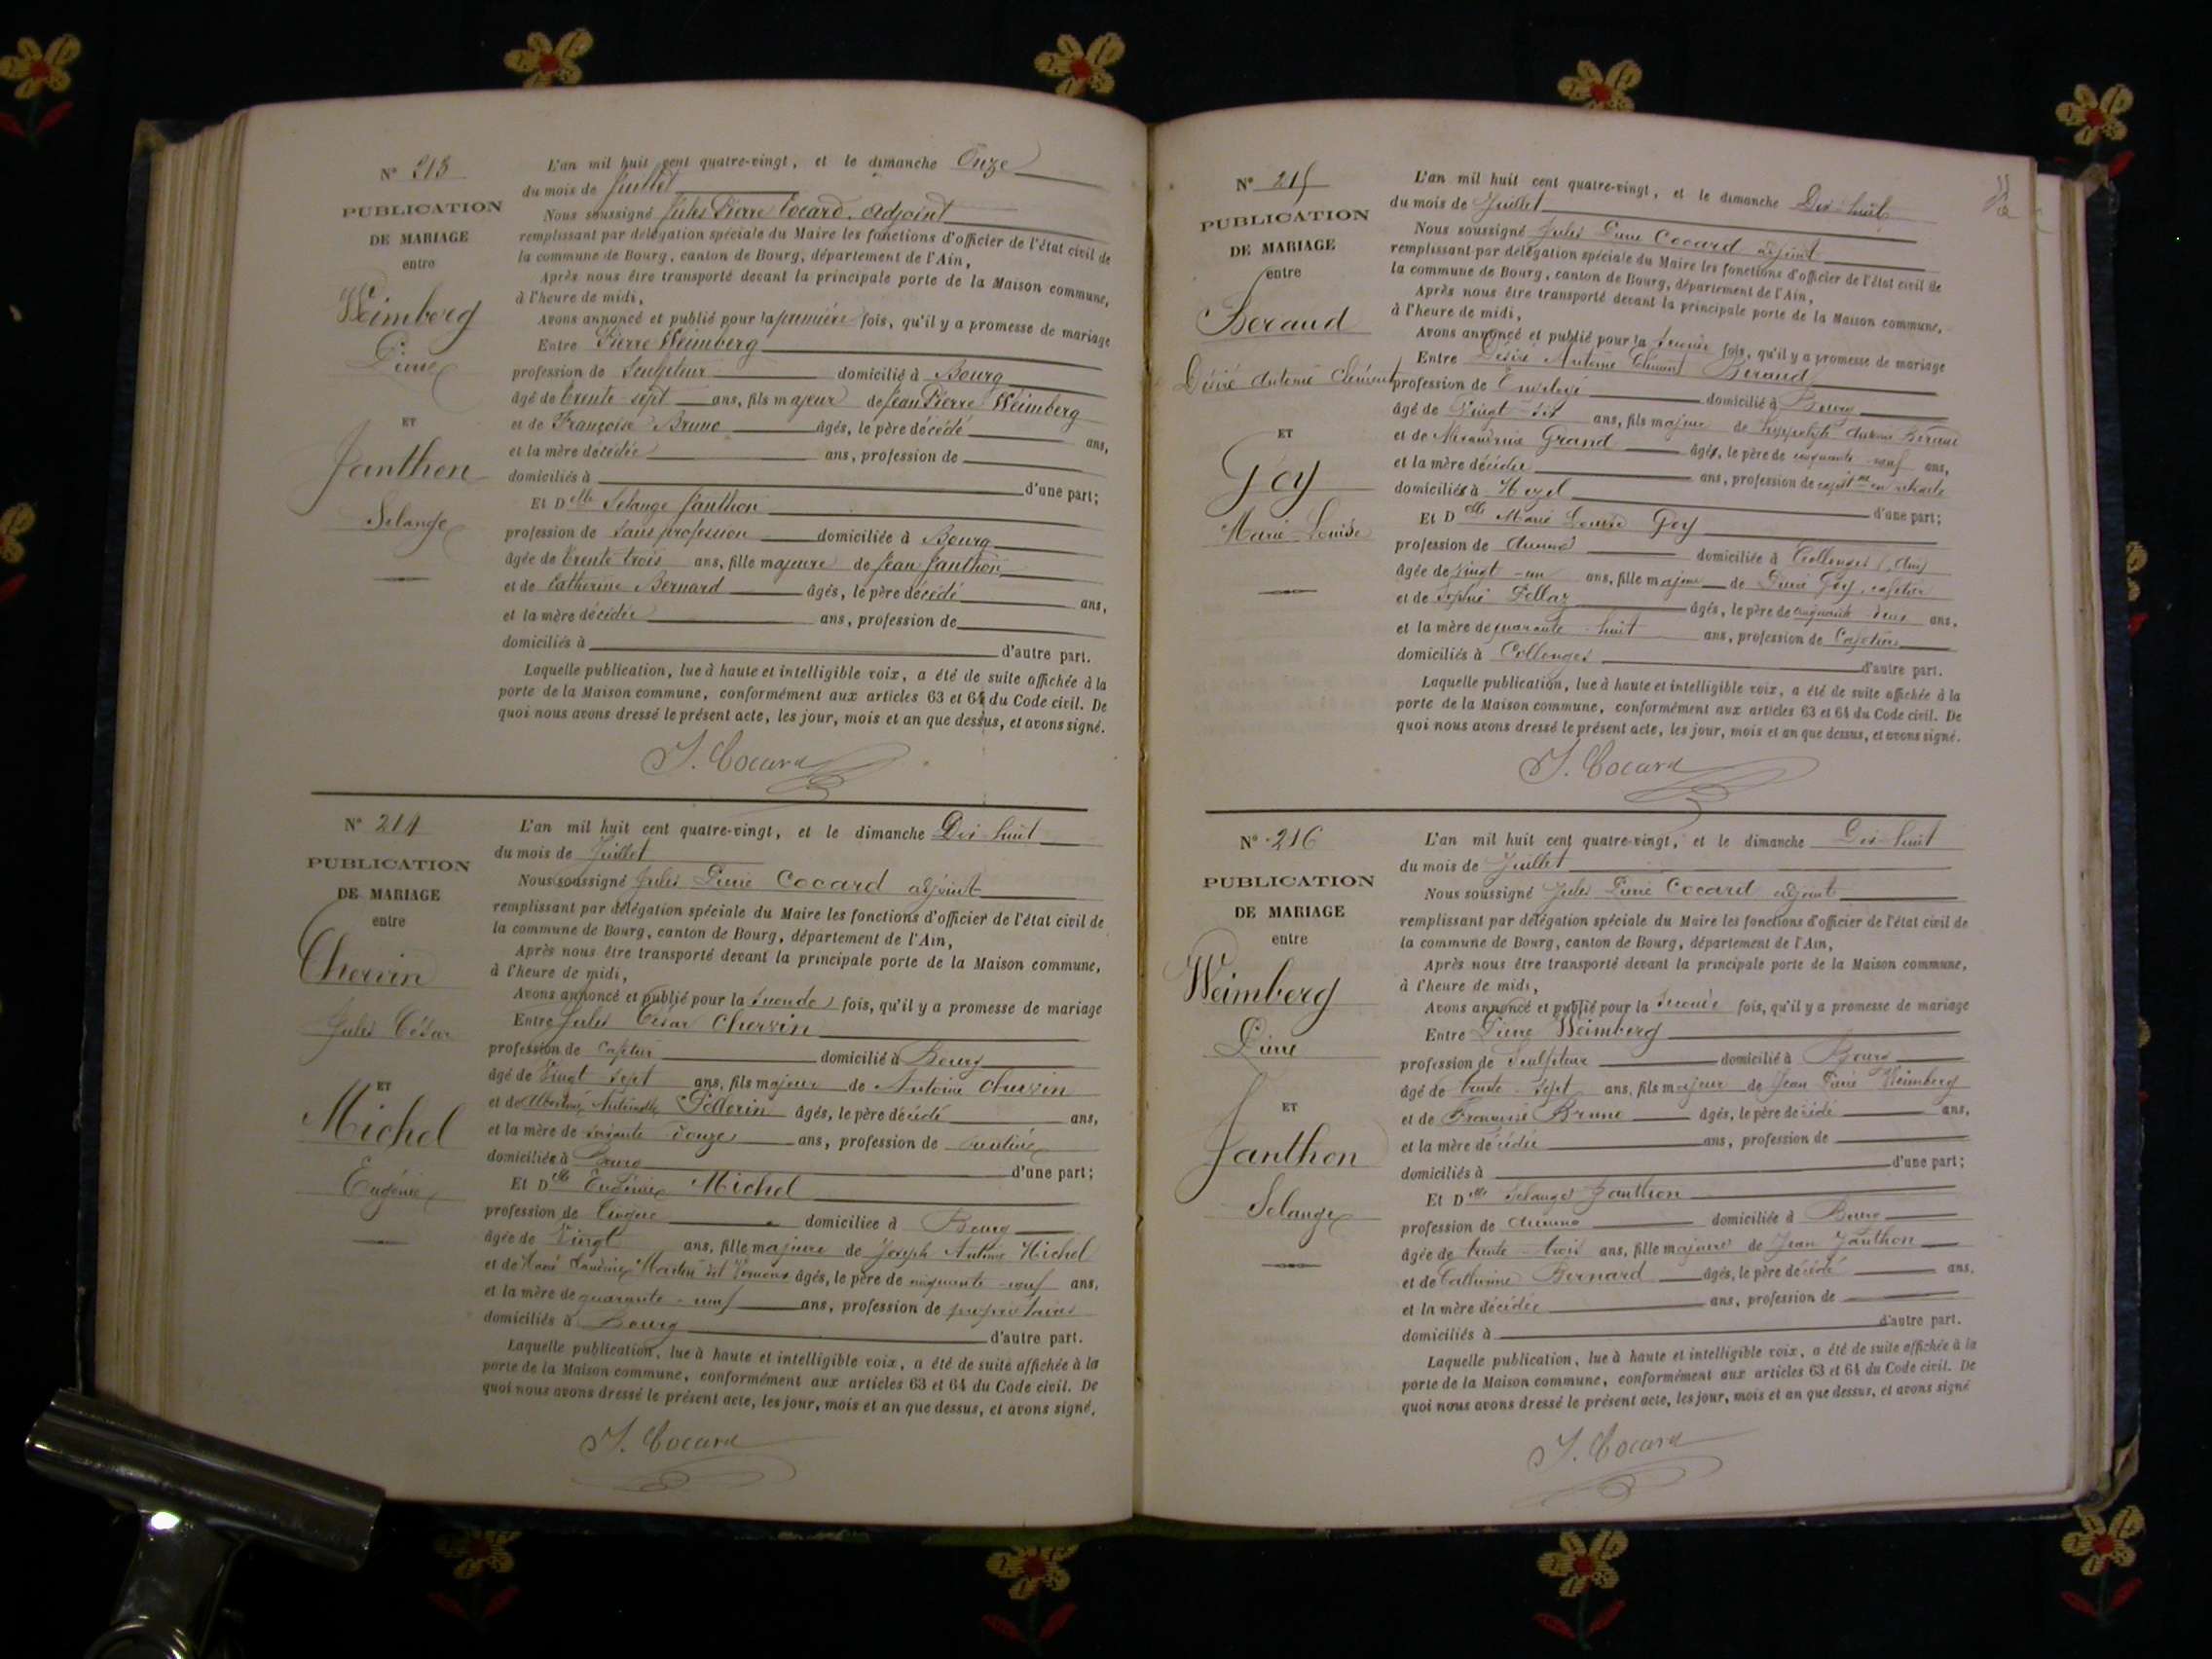 N° 213
PUBLICATION
DE MARIAGE
entre
Weimberg
Pierre
ET
Janthon
Solange
L'an mil huit cent quatre-vingt, et le dimanche Onze
du mois de Juillet
Nous soussigné Jules Pierre Cocard, adjoint
remplissant par délégation spéciale du Maire les fonctions d'officier de l'état civil de
la commune de Bourg, canton de Bourg, département de l'Ain,
Après nous être transporté devant la principale porte de la Maison commune,
à l'heure de midi,
Avons annoncé et publié pour la première fois, qu'il y a promesse de mariage
Entre Pierre Weimberg
profession de Sculpteur domicilié à Bourg
âgé de trente-sept ans, fils majeur de Jean Pierre Weimberg
et de Françoise Brune âgés, le père décédé ans,
et la mère décédée ans, profession de
domiciliés à d'une part;
Et Delle Solange Janthon
profession de sans profession domiciliée à Bourg
âgée de trente trois ans, fille majeure de Jean Janthon
et de Catherine Bernard âgés, le père décédé ans,
et la mère décédée ans, profession de
domiciliés à d'autre part.
Laquelle publication, lue à haute et intelligible voix, a été de suite affichée à la
porte de la Maison commune, conformément aux articles 63 et 64 du Code civil. De
quoi nous avons dressé le présent acte, les jour, mois et an que dessus, et avons signé.
J. Cocard
N° 214
PUBLICATION
DE MARIAGE
entre
Chervin
Jules César
ET
Michel
Eugénie
L'an mil huit cent quatre-vingt, et le dimanche Dix-huit
du mois de Juillet
Nous soussigné Jules Pierre Cocard adjoint
remplissant par délégation spéciale du Maire les fonctions d'officier de l'état civil de
la commune de Bourg, canton de Bourg, département de l'Ain,
Après nous être transporté devant la principale porte de la Maison commune,
à l'heure de midi,
Avons annoncé et publié pour la seconde fois, qu'il y a promesse de mariage
Entre Jules César Chervin
profession de domicilié à Bourg
âgé de Vingt sept ans, fils majeur de Antoine Chervin
et de Pellerin âgés, le père décédé ans,
et la mère de soixante-douze ans, profession de rentière
domiciliés à Bourg d'une part;
Et Delle Eugénie Michel
profession de domiciliée à Bourg
âgée de Vingt ans, fille majeure de Joseph Antoine Michel
et de âgés, le père de cinquante-neuf ans,
et la mère de quarante-neuf ans, profession de propriétaires
domiciliés à Bourg d'autre part.
Laquelle publication, lue à haute et intelligible voix, a été de suite affichée à la
porte de la Maison commune, conformément aux articles 63 et 64 du Code civil. De
quoi nous avons dressé le présent acte, les jour, mois et an que dessus, et avons signé.
J. Cocard
N° 215
PUBLICATION
DE MARIAGE
entre
Beraud
Désiré Antoine Clément
ET
Goy
Marie-Louise
L'an mil huit cent quatre-vingt, et le dimanche Dix-huit
du mois de Juillet
Nous soussigné Jules Pierre Cocard adjoint
remplissant par délégation spéciale du Maire les fonctions d'officier de l'état civil de
la commune de Bourg, canton de Bourg, département de l'Ain,
Après nous être transporté devant la principale porte de la Maison commune,
à l'heure de midi,
Avons annoncé et publié pour la seconde fois, qu'il y a promesse de mariage
Entre Désiré Antoine Clément Beraud
profession de Employé domicilié à Bourg
âgé de Vingt-six ans, fils majeur de Hippolyte Antoine Beraud
et de Alexandrine Grand âgés, le père de cinquante-neuf ans,
et la mère décédée ans, profession de capitne en retraite
domiciliés à d'une part;
Et Delle Marie Louise Goy
profession de Aucune domiciliée à Collonges (Ain)
âgée de vingt-un ans, fille majeure de Pierre Goy, cafetier
et de Sophie Pellaz âgés, le père de cinquante-deux ans,
et la mère de quarante-huit ans, profession de Cafetiers
domiciliés à Collonges d'autre part.
Laquelle publication, lue à haute et intelligible voix, a été de suite affichée à la
porte de la Maison commune, conformément aux articles 63 et 64 du Code civil. De
quoi nous avons dressé le présent acte, les jour, mois et an que dessus, et avons signé.
J. Cocard
N° 216
PUBLICATION
DE MARIAGE
entre
Weimberg
Pierre
ET
Janthon
Solange
L'an mil huit cent quatre-vingt, et le dimanche Dix-huit
du mois de Juillet
Nous soussigné Jules Pierre Cocard adjoint
remplissant par délégation spéciale du Maire les fonctions d'officier de l'état civil de
la commune de Bourg, canton de Bourg, département de l'Ain,
Après nous être transporté devant la principale porte de la Maison commune,
à l'heure de midi,
Avons annoncé et publié pour la seconde fois, qu'il y a promesse de mariage
Entre Pierre Weimberg
profession de Sculpteur domicilié à Bourg
âgé de trente-sept ans, fils majeur de Jean Pierre Weimberg
et de Françoise Brune âgés, le père décédé ans,
et la mère décédée ans, profession de
domiciliés à d'une part;
Et Delle Solange Janthon
profession de Aucune domiciliée à Bourg
âgée de trente-trois ans, fille majeure de Jean Janthon
et de Catherine Bernard âgés, le père décédé ans,
et la mère décédée ans, profession de
domiciliés à d'autre part.
Laquelle publication, lue à haute et intelligible voix, a été de suite affichée à la
porte de la Maison commune, conformément aux articles 63 et 64 du Code civil. De
quoi nous avons dressé le présent acte, les jour, mois et an que dessus, et avons signé
J. Cocard